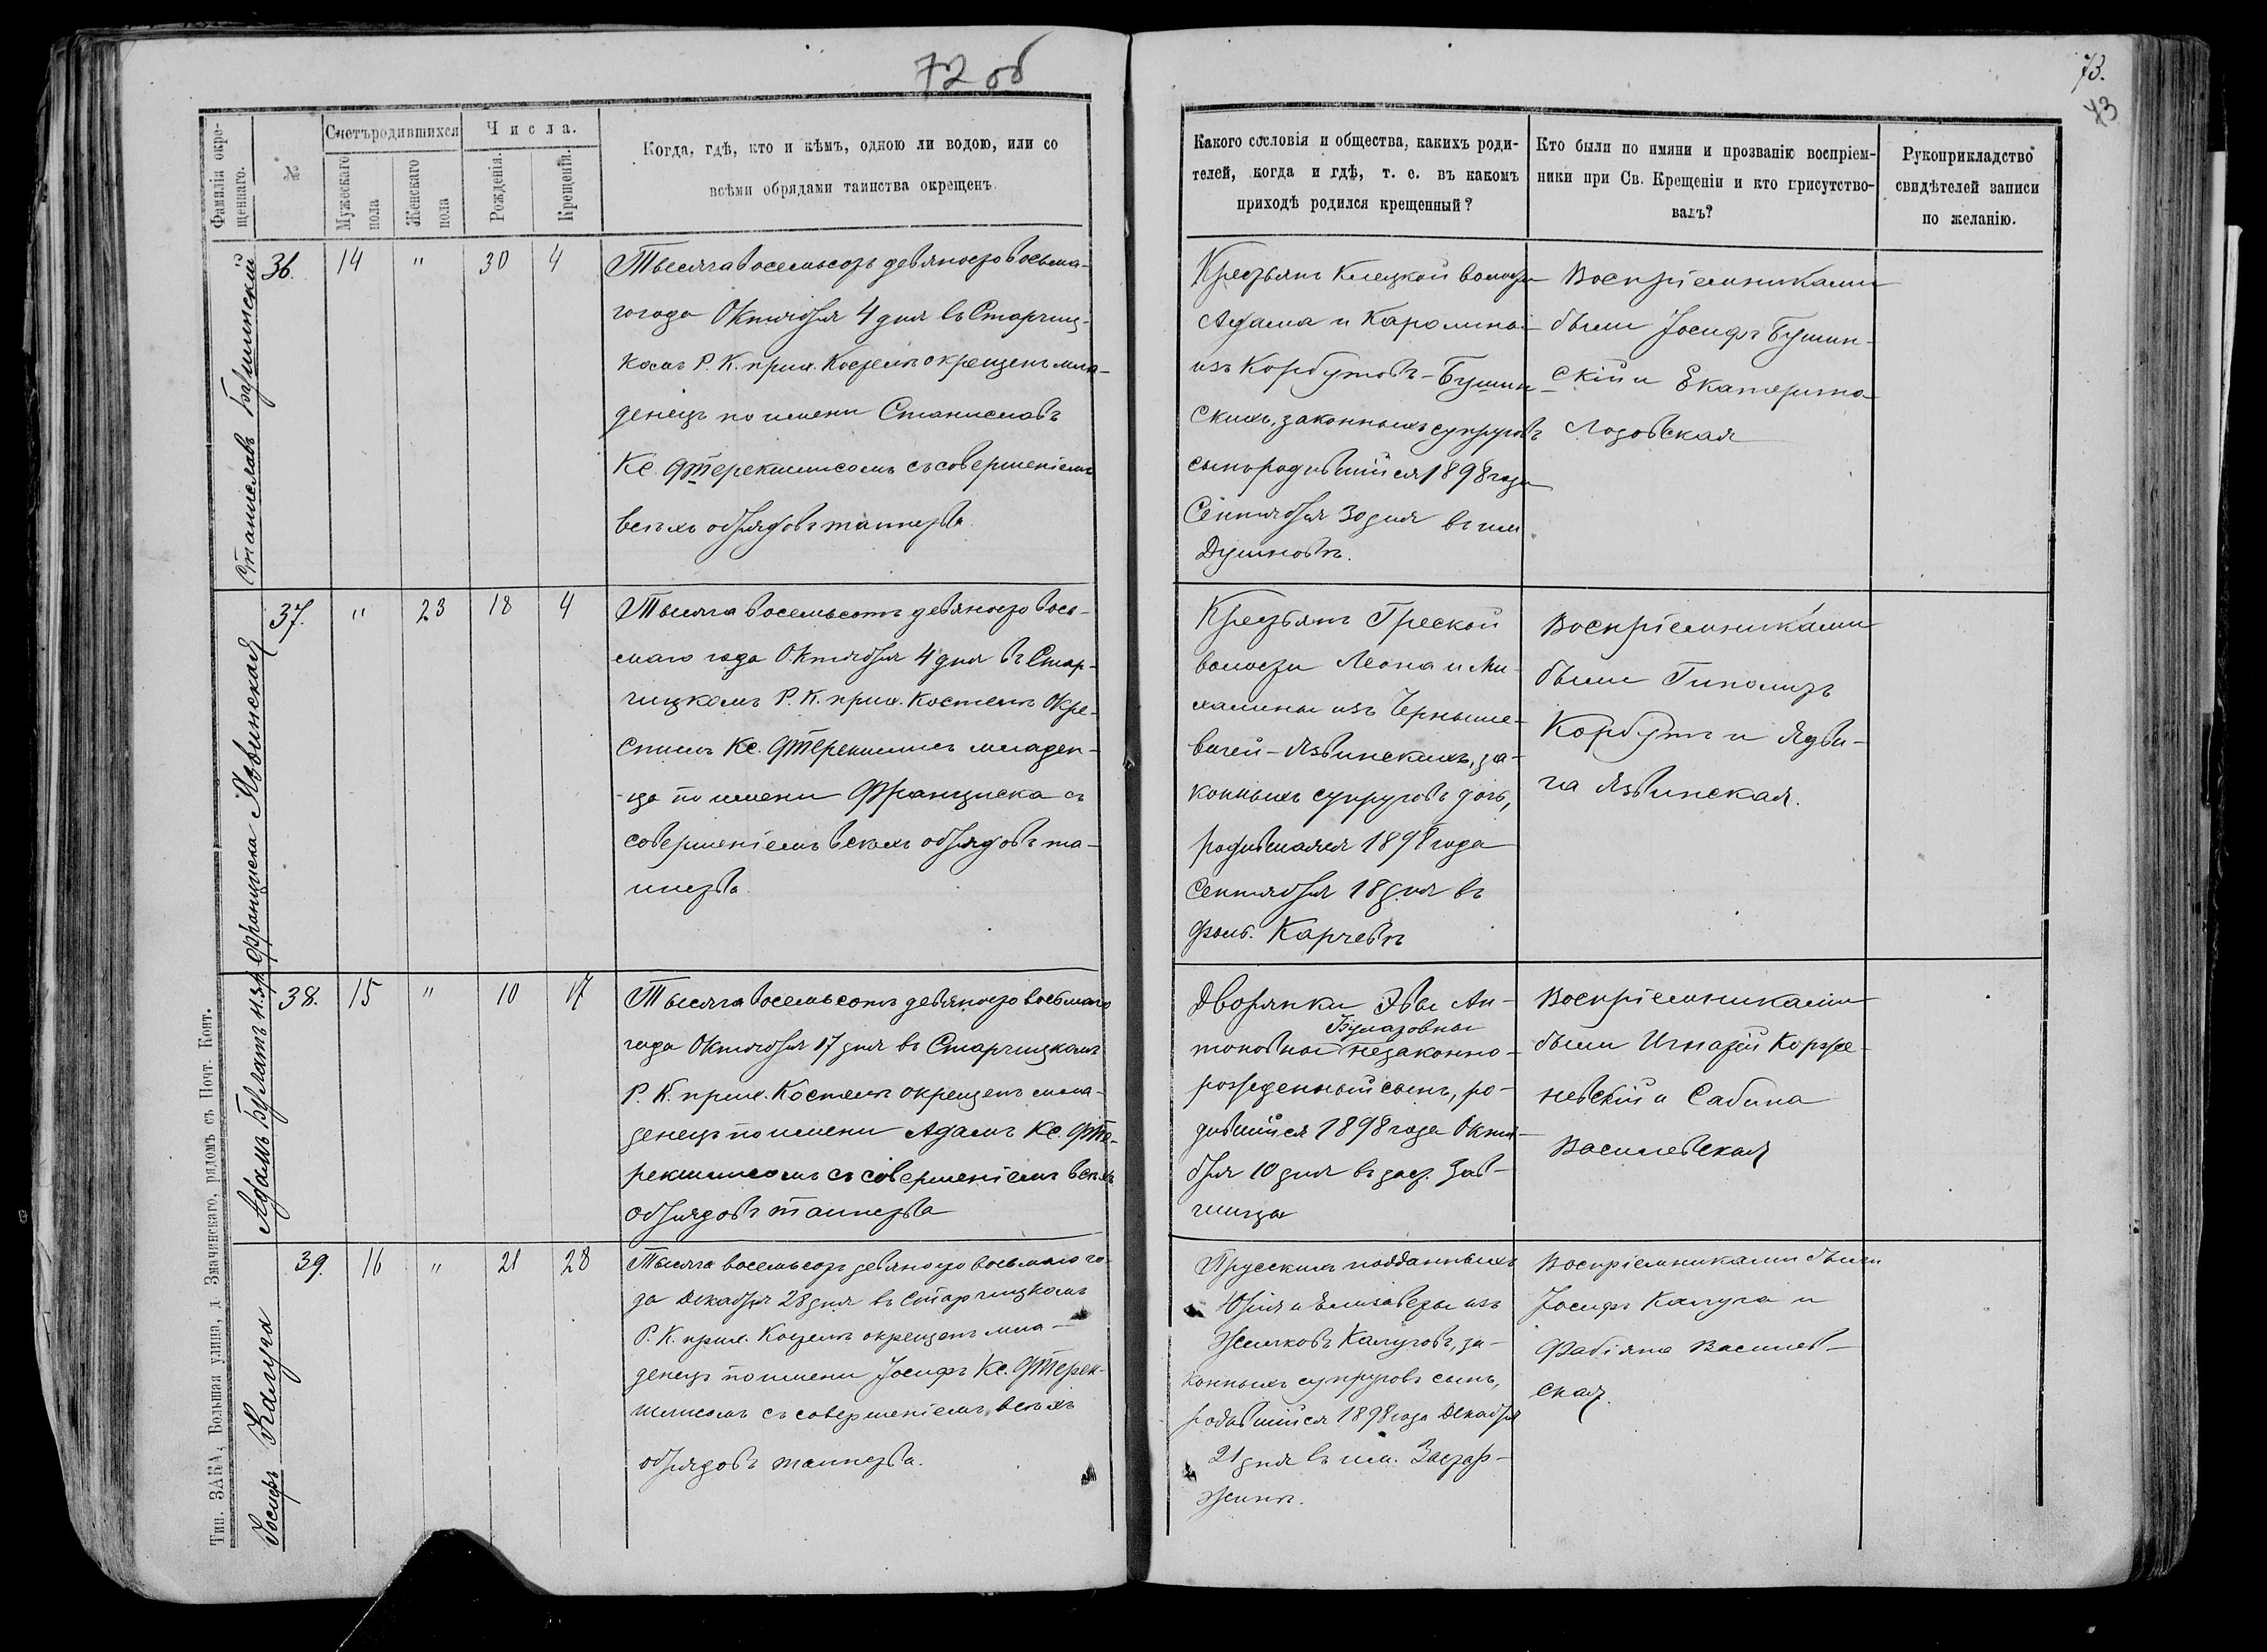 72 об
73.
73
Фамилія окре-
щеннаго.
№
Счетъ родившихся
Мужескаго
пола
Женскаго
пола
Числа.
Рожденія.
Крещенія.
Когда, гдѣ, кто и кѣмъ, одною ли водою, или со
всѣми обрядами таинства окрещенъ.
Какого сословія и общества, какихъ роди-
телей, когда и гдѣ, т. е. въ какомъ
приходѣ родился крещенный?
Кто были по имяни и прозванію воспріем-
ники при Св. Крещеніи и кто присутство-
валъ?
Рукоприкладство
свидѣтелей записи
по желанію.
Станиславъ Бушинскій
36. 14 " 30 4
Тысяча восемьсотъ девяносто восьма-
го года Октября 4 дня въ Старчиц-
комъ Р. К. прих. Костелѣ окрещенъ мла-
денецъ по имени Станиславъ
Кс. Фтерекшисомъ съ совершеніемъ
всѣхъ обрядовъ таинства.
Крестьянъ Клецкой волости
Адама и Каролины
изъ Корбутовъ-Бушин-
скихъ, законныхъ супруговъ
сынъ родившійся 1898 года
Сентября 30 дня въ им
Душновѣ.
Воспріемниками
были Іосифъ Бушин-
скій и Екатерина
Лозовская
Франциска Язвинская
37. " 23 18 4
Тысяча восемьсотъ девяносто вось-
маго года Октября 4 дня въ Стар-
чицкомъ Р. К. прих. Костелѣ окре-
стилъ Кс. Фтерекшисъ младен-
ца по имени Франциска съ
совершеніемъ всѣхъ обрядовъ та-
инства.
Крестьянъ Греской
волости Леона и Ми-
халины изъ Черныше-
вичей-Язвинскихъ, за-
конныхъ супруговъ дочь,
родившаяся 1898 года
Сентября 18 дня въ
фоль. Карчевѣ
Воспріемниками
были Гиполитъ
Корбутъ и Ядви-
га Язвинская.
Адамъ Булатъ н.з.р.
38. 15 " 10 17
Тысяча восемьсотъ девяносто восьмаго
года Октября 17 дня въ Старчицкомъ
Р. К. прих. Костелѣ окрещенъ мла-
денецъ по имени Адамъ Кс. Фте-
рекшисомъ съ совершеніемъ всѣхъ
обрядовъ таинства
Дворянки Эвы Ан-
Булатовны
тоновны незаконно-
рожденный сынъ, ро-
дившійся 1898 года Октя-
бря 10 дня въ заст.
Воспріемниками
были Игнатій Корже-
невскій и Сабина
Василевская
Іосифъ Калуга
39. 16 " 21 28
Тысяча восемьсотъ девяносто восьмаго го-
да Декабря 28 дня въ Старчицкомъ
Р. К. прих. Костелѣ окрещенъ мла-
денецъ по имени Іосифъ Кс. Фтерек-
шисомъ съ совершеніемъ всѣхъ
обрядовъ таинства.
Прусскихъ подданныхъ
Юрія и Елизаветы изъ
Жилковъ Калуговъ, за-
конныхъ супруговъ сынъ,
родившійся 1898 года Декабря
21 дня въ им.
Воспріемниками были
Іосифъ Калуга и
Фабіяна Василев-
ская.
Тип. ЗАКА, Большая улица, д. Значинскаго, рядомъ съ Почт. Конт.